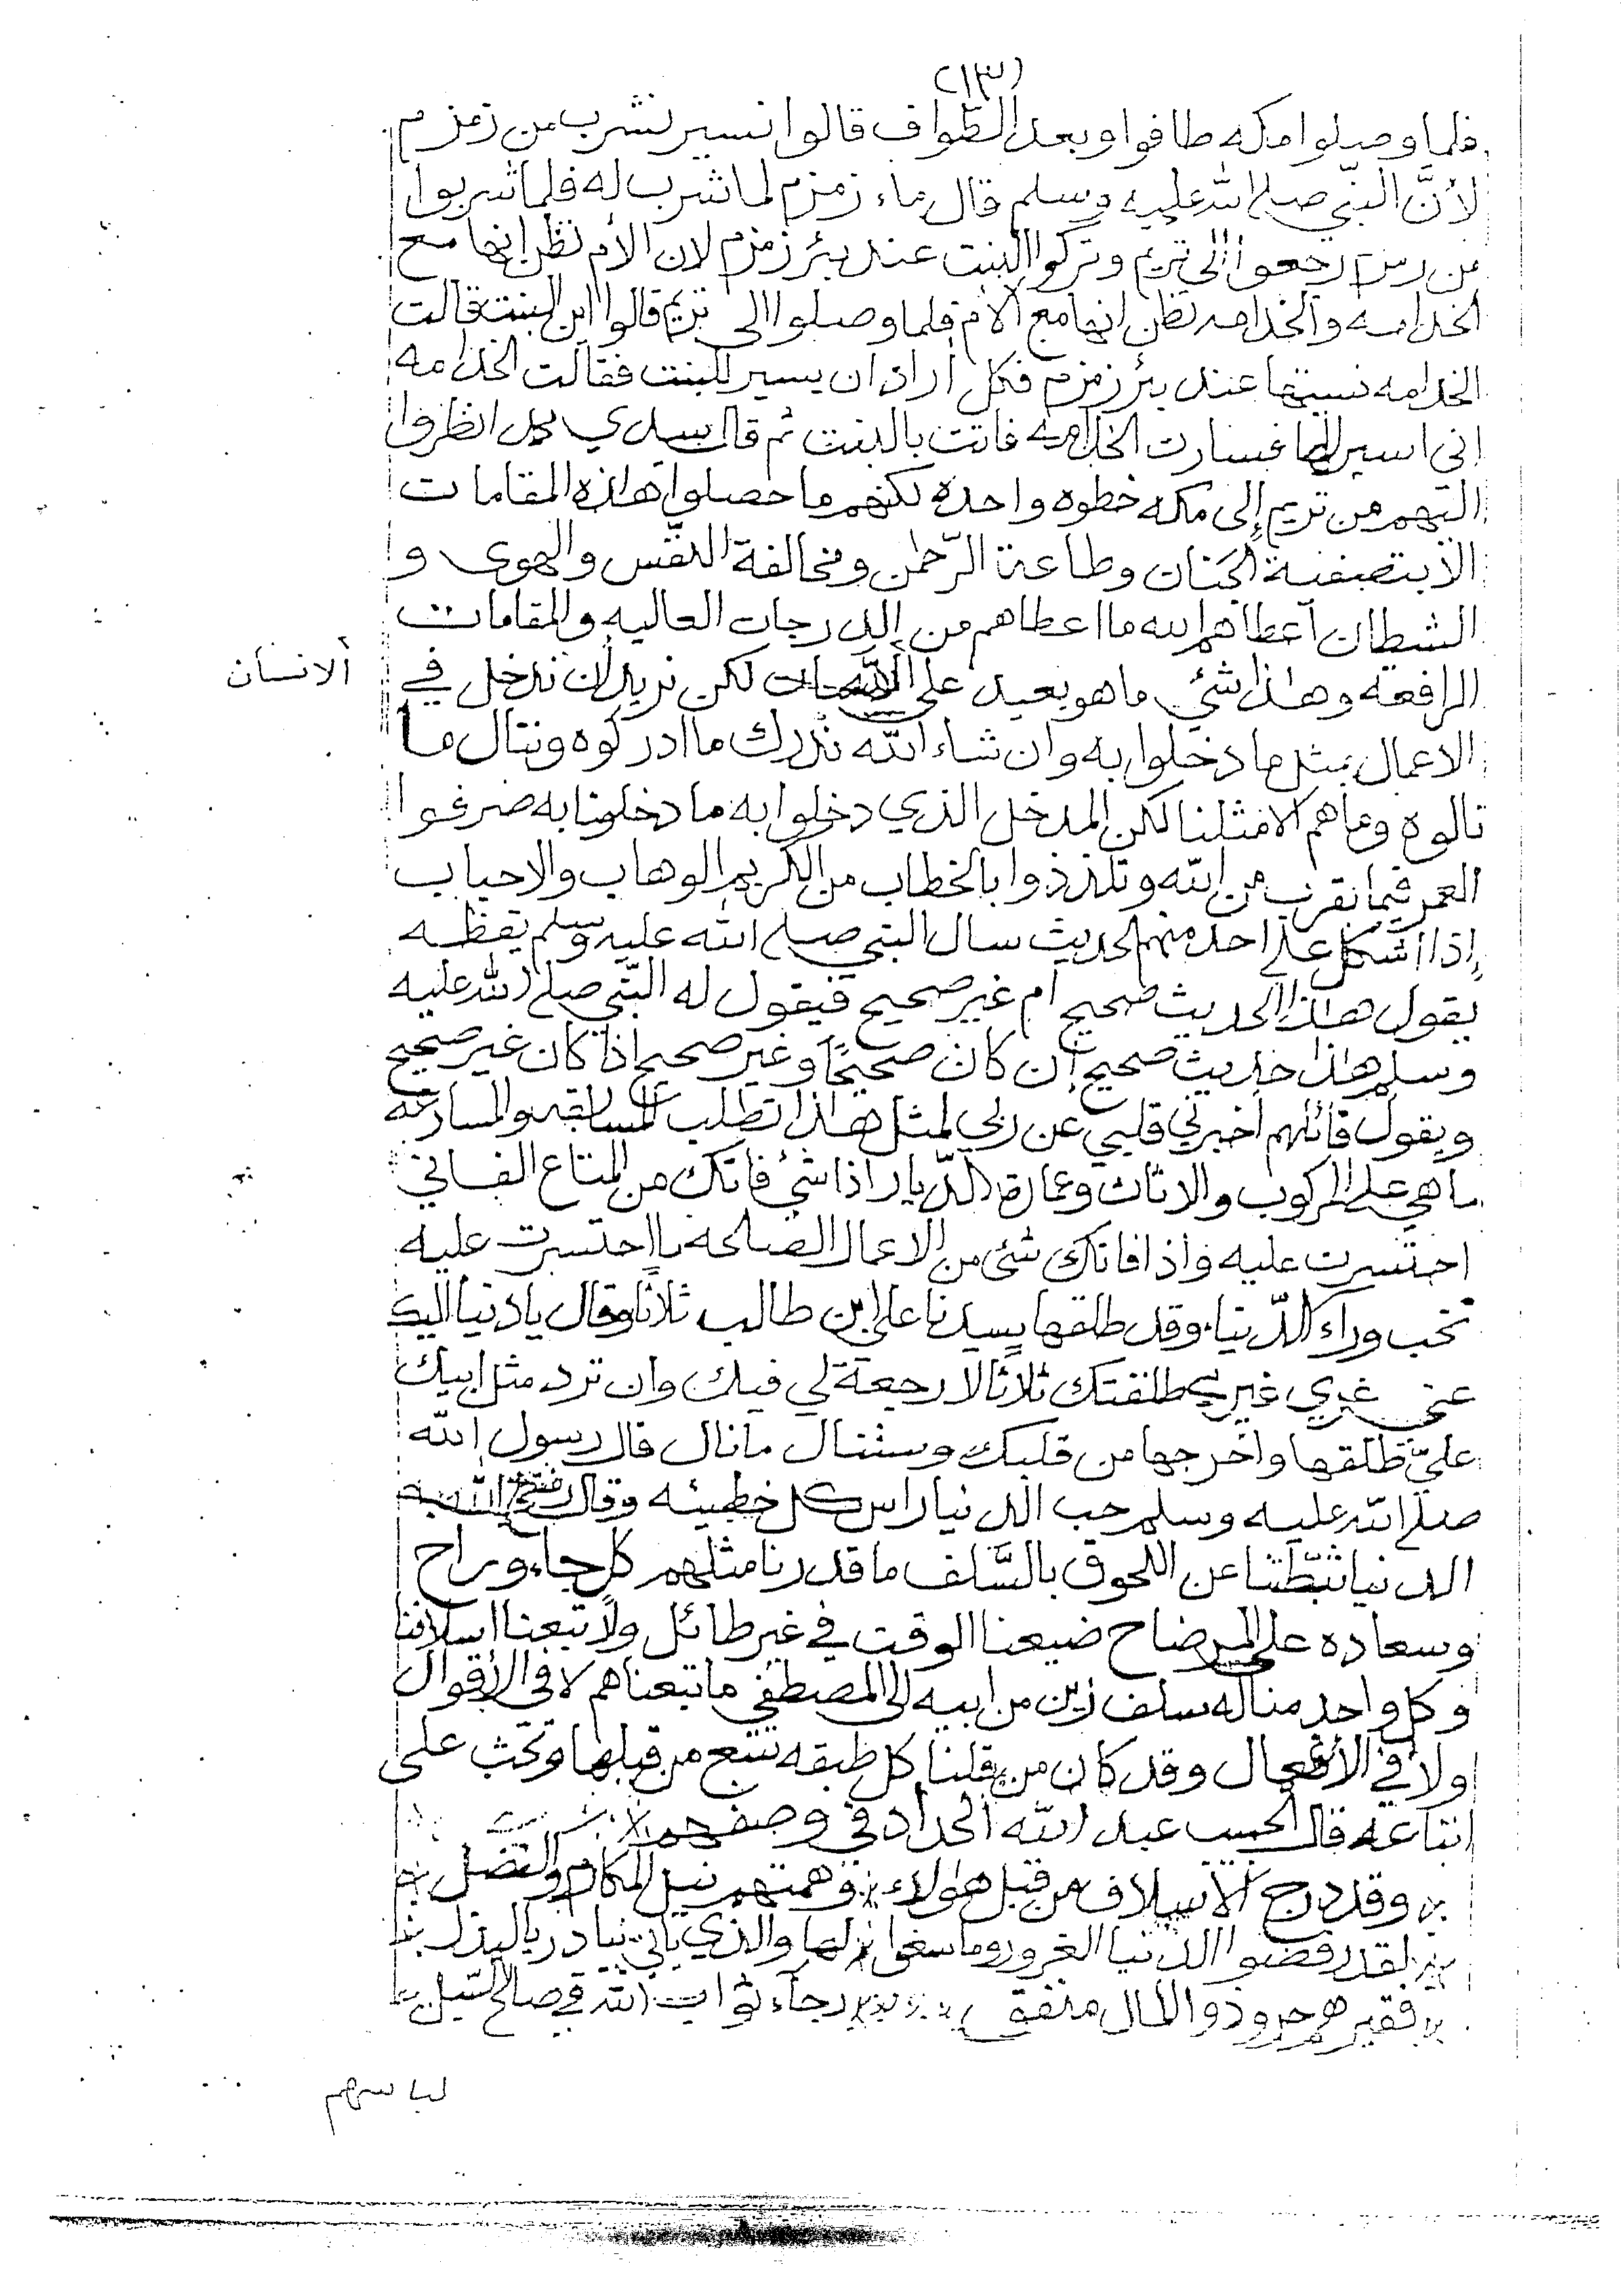 (١٣)
فلما وصلوا مكه طافوا وبعد الطّواف قالوا نسير نشرب من زمزم
لأنَّ النبّي صلى الله عليه وسلم قال ماء زمزم لما شرب له فلما شربوا
من زمزم رجعوا إلى تريم وتركوا البنت عند بئر زمزم لان الأم تظن انها مع
الخدامه والخدامه تظن انها مع الأم فلما وصلوا الى تريم قالوا اين البنت قالت
الخدامه نسيتها عند بئر زمزم فكل اراد ان يسير للبنت فقالت الخدامه
اني اسير لها فسارت الخدامه فاتت بالبنت ثم قال سيدي انظروا
اليهم من تريم إلى مكه خطوه واحده لكنهم ما حصلوا هاذه المقامات
الا بتصفية الجنان وطاعة الرّحمن ومخالفة النفّس والهوى و
الشطان اعطاهم الله ما اعطاهم من الدرجات العاليه والمقامات
الرافعه وهاذا شئي ما هو بعيد على لكن نريد ان ندخل في
الانسان
الاعمال بمثل ما دخلوا به وان شاء الله ندرك ما ادركوه وننال ما
نالوه وما هم الا مثلنا لكن المدخل الذي دخلوا به ما دخلونا به صرفوا
العمر فيما يقرب من الله وتلذذوا بالخطاب من الكريم الوهاب والاحباب
إذا اشكل على احد منهم الحديث سال النبي صلى الله عليه وسلم يقظه
يقول هاذا الحديث صحيح ام غير صحيح فيقول له النبّي صلى الله عليه
وسلم هاذا حديث صحيح ان كان صحيحًا وغير صحيح اذا كان غير صحيح
ويقول قائلهم أخبرني قلبي عن ربي لمثل هاذا تطلب المسابقه والمسارعه
ما هي على المركوب والاثاث وعمارة الدّيار اذا شئ فاتك من المتاع الفاني
احتسرت عليه واذا فاتك شئ من الاعمال الصالحه ما احتسرت عليه
تخب وراء الدّنيا وقد طلقها سيدنا علي ابن طالب ثلاثًا وقال يا دنيا اليك
عني غري غيري طلقتك ثلاثًا لا رجعة لي فيك وان ترد مثل ابيك
عليّ طلقها واخرجها من قلبك وستنال ما نال قال رسول الله
صلى الله عليه وسلم حب الدنيا راس كل خطيئه وقال
الدنيا ثبّطتنا عن اللحوق بالسَّلف ما قدرنا مثلهم كل جاء وراح
وسعاده على المرضاح ضيعنا الوقت في غير طائل ولا تبعنا اسلافنا
وكل واحد منا له سلف زين من ابيه الى المصطفى ما تبعناهم لا في الأقوال
ولا في الأفعال وقد كان من قبلنا كل طبقه تتبع من قبلها وتحث على
اتباعه قال الحبيب عبد الله الحداد في وصفهم
وقد درج الاسلاف من قبل هؤلاء وهمتهم نيل المكارم والفضل
لقد رفضوا الدنيا الغرور وما سعوا لها والذي ياتي يبادر بالبذل
فقيرهم حر وذو المال منفق رجاء ثواب الله في صالح السّبل
لباسهم